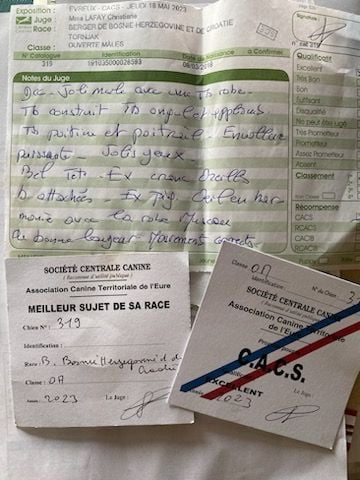 Exposition : EVREUX - CACS - JEUDI 18 MAI 2023
Mme LAFAY Christiane
Race : BERGER DE BOSNE-HERZEGOVINE ET DE CROATIE
TORNJAK
Classe : OUVERTE MÂLES
N° Catalogue Date de Naissance a Confirmer
319 191035000028583 06/03/2018
Signature
n° cat 319
Notes du Juge
Joli male avec une Tb robe.
Tb construit Tb angulations
Tb poitrine et poitrail - Encolure
puissante - Jolis yeux.
Bel Tete. Ex crane Oreilles
b attachées. Ex Pig. Oeil en har
monie avec la robe Museau
de bonne longueur Mouvement correct.
Qualificatif
Excellent
Très Bon
Bon
Suffisant
Disqualifié
Ne peut être jugé
Très Prometteur
Prometteur
Assez Prometteur
Absent
Classement
Récompense
RCACS
CACS
RCACIB
CACIB
SOCIÉTÉ CENTRALE CANINE
(Reconnue d'utilité publique)
Association Canine Territoriale de l'Eure
MEILLEUR SUJET DE SA RACE
Chien N° : 319
Identification :
Race : B. Bosnie Herzegovine et de
Croatie
Classe : OA
Année : 2023 Le Juge :
Classe : OA N° du Chien : 3
Identification :
SOCIÉTÉ CENTRALE CANINE
(Reconnue d'utilité publique)
Association Canine Territoriale
de l'Eure
C.A.C.S.
EXCELLENT
2023 Le Juge :